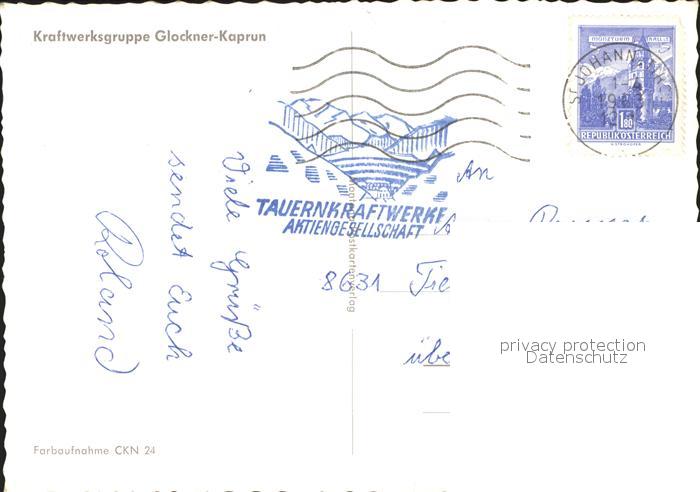 Kraftwerksgruppe Glockner-Kaprun
MÜNZTURM HALL i. T.
ST. JOHANN
1.80
REPUBLIK ÖSTERREICH
TAUERNKRAFTWERKE
AKTIENGESELLSCHAFT
Viele Grüße
sendet Euch
Roland
An
8631 Tie
übe
privacy protection
Datenschutz
Farbaufnahme CKN 24